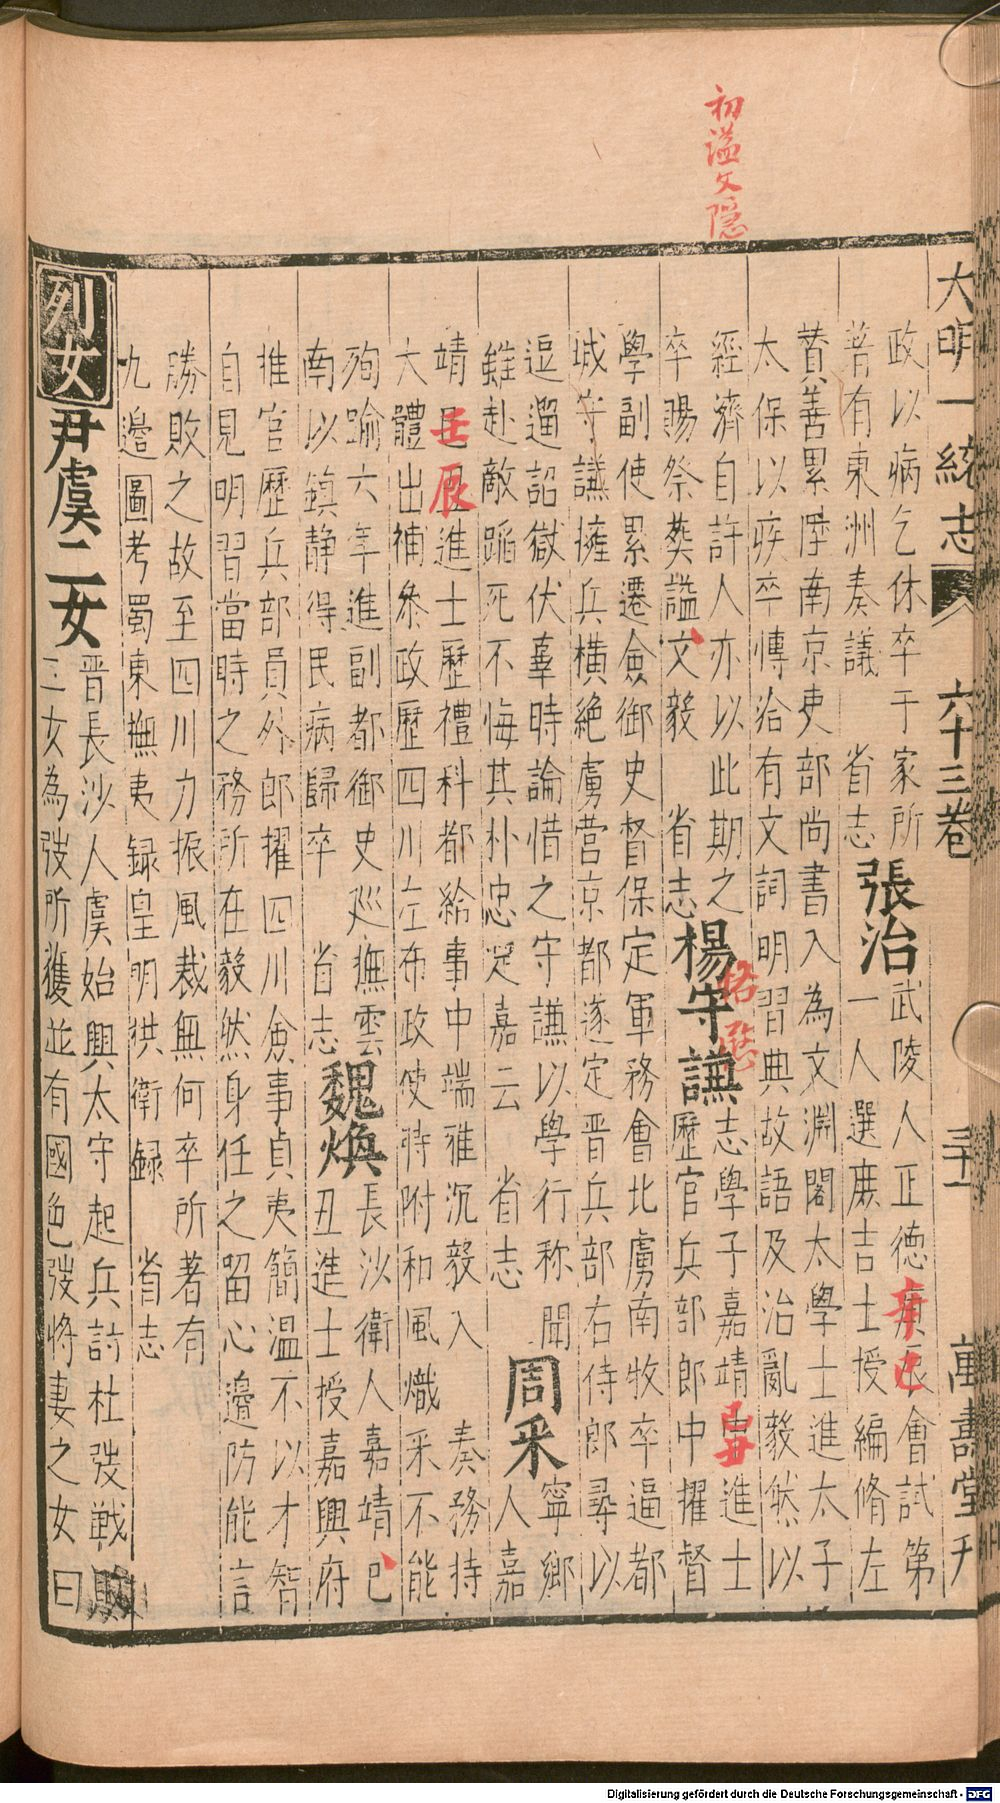 初溢文隱
大明一統志 六十三卷 三十一 萬壽堂刋
政以病乞休卒于家所
著有東洲奏議 省志
張治
武陵人正德庚辰會試第
辛巳
一人選庶吉士授編脩左
賛善累陞南京吏部尚書入為文淵閣太學士進太子
太保以疾卒博洽有文詞明習典故語及治亂毅然以
經濟自許人亦以此期之
卒賜祭葬謚文毅 省志
楊守謙
恪愍
志學子嘉靖進士
己丑
歷官兵部郎中擢督
學副使累遷僉御史督保定軍務會北虜南牧卒逼都
城守謙擁兵橫絶虜营京都遂定晋兵部右侍郎尋以
逗遛詔獄伏辜時論惜之守謙以學行称聞
雖赴敵蹈死不悔其朴忠足嘉云 省志
周采
寧鄉
人嘉
靖進士歷禮科都給事中端雅沉毅入奏務持
壬辰
大體出補叅政歷四川左布政使時附和風熾采不能
殉踰六年進副都御史廵撫雲
南以鎮静得民病歸卒 省志
魏煥
長沙衛人嘉靖巳
丑進士授嘉興府
推官歷兵部員外郎擢四川僉事貞夷簡温不以才智
自見明習當時之務所在毅然身任之留心邊防能言
勝敗之故至四川力振風裁無何卒所著有
九邉圖考蜀東撫夷録皇明拱衛録 省志
列女
尹虞二女
晋長沙人虞始興太守起兵討杜弢戦敗
二女為弢所獲並有國色弢將妻之女曰
Digitalisierung gefördert durch die Deutsche Forschungsgemeinschaft - DFG